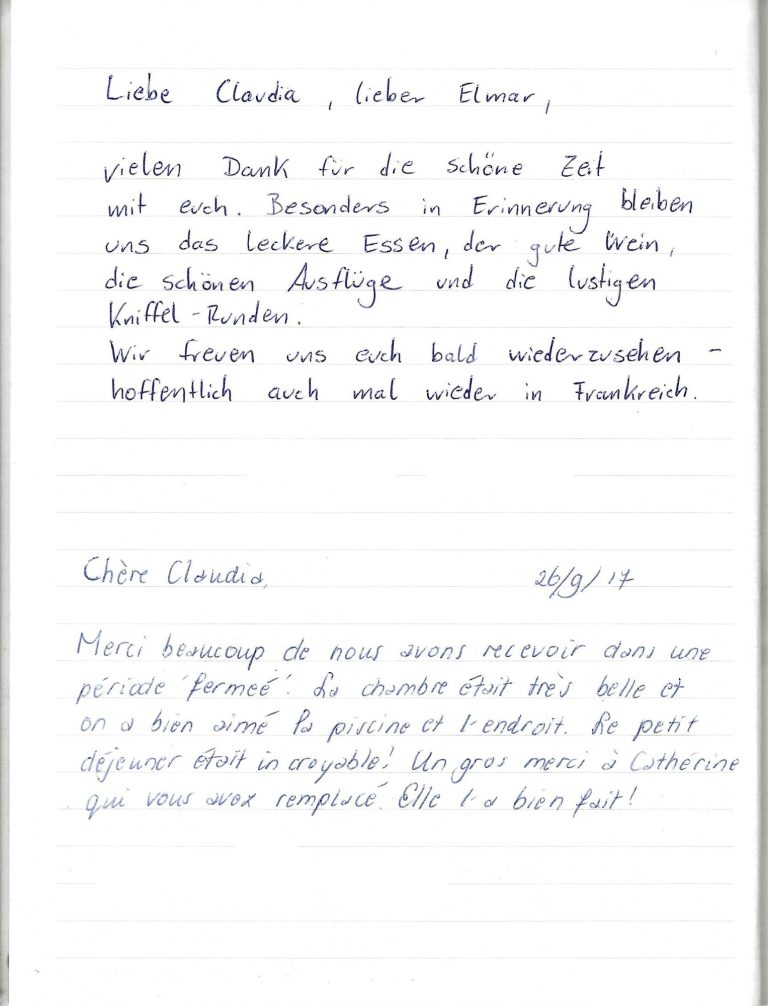 Liebe Claudia, lieber Elmar,
vielen Dank für die schöne Zeit
mit euch. Besonders in Erinnerung bleiben
uns das leckere Essen, der gute Wein,
die schönen Ausflüge und die lustigen
Kniffel-Runden.
Wir freuen uns euch bald wiederzusehen -
hoffentlich auch mal wieder in Frankreich.
Chère Claudia, 26/9/17
Merci beaucoup de nous avons recevoir dans une
période 'fermeé'. La chambre était très belle et
on a bien aimé la piscine et l'endroit. Le petit
déjeuner était incroyable! Un gros merci à Cathérine
qui vous avez remplacé. Elle l'a bien fait!